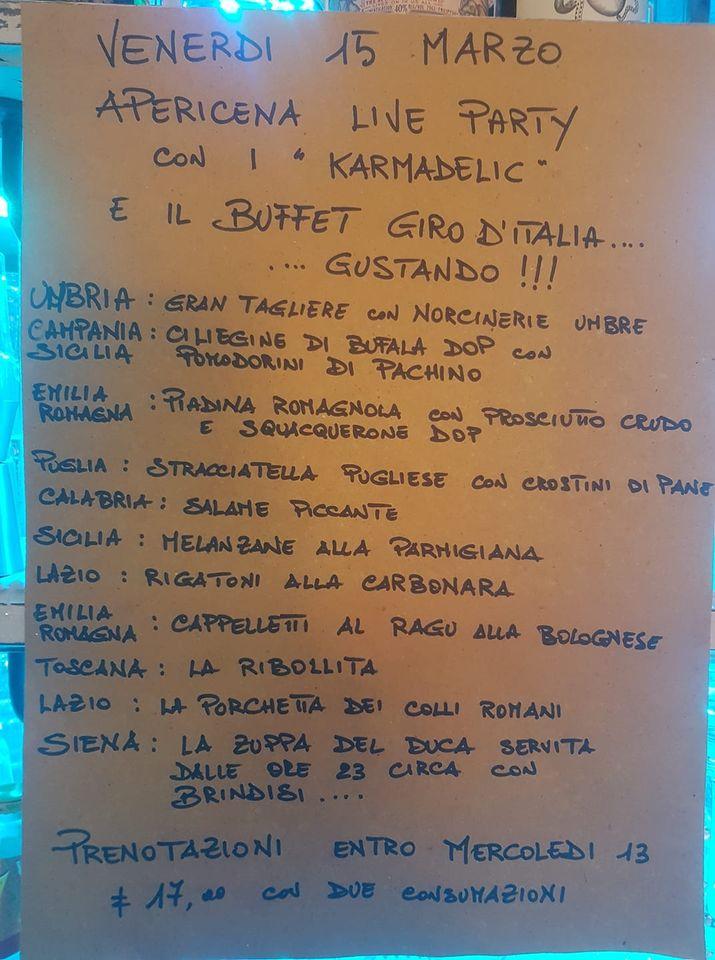 VENERDI 15 MARZO
APERICENA LIVE PARTY
CON I "KARMADELIC"
E IL BUFFET GIRO D'ITALIA....
.... GUSTANDO !!!
UMBRIA : GRAN TAGLIERE CON NORCINERIE UMBRE
CAMPANIA : CILIEGINE DI BUFALA DOP CON
SICILIA POMODORINI DI PACHINO
EMILIA
ROMAGNA : PIADINA ROMAGNOLA CON PROSCIUTTO CRUDO
E SQUACQUERONE DOP
PUGLIA : STRACCIATELLA PUGLIESE CON CROSTINI DI PANE
CALABRIA : SALAME PICCANTE
SICILIA : MELANZANE ALLA PARMIGIANA
LAZIO : RIGATONI ALLA CARBONARA
EMILIA
ROMAGNA : CAPPELLETTI AL RAGU ALLA BOLOGNESE
TOSCANA : LA RIBOLLITA
LAZIO : LA PORCHETTA DEI COLLI ROMANI
SIENA : LA ZUPPA DEL DUCA SERVITA
DALLE ORE 23 CIRCA CON
BRINDISI ....
PRENOTAZIONI ENTRO MERCOLEDI 13
€ 17,00 CON DUE CONSUMAZIONI